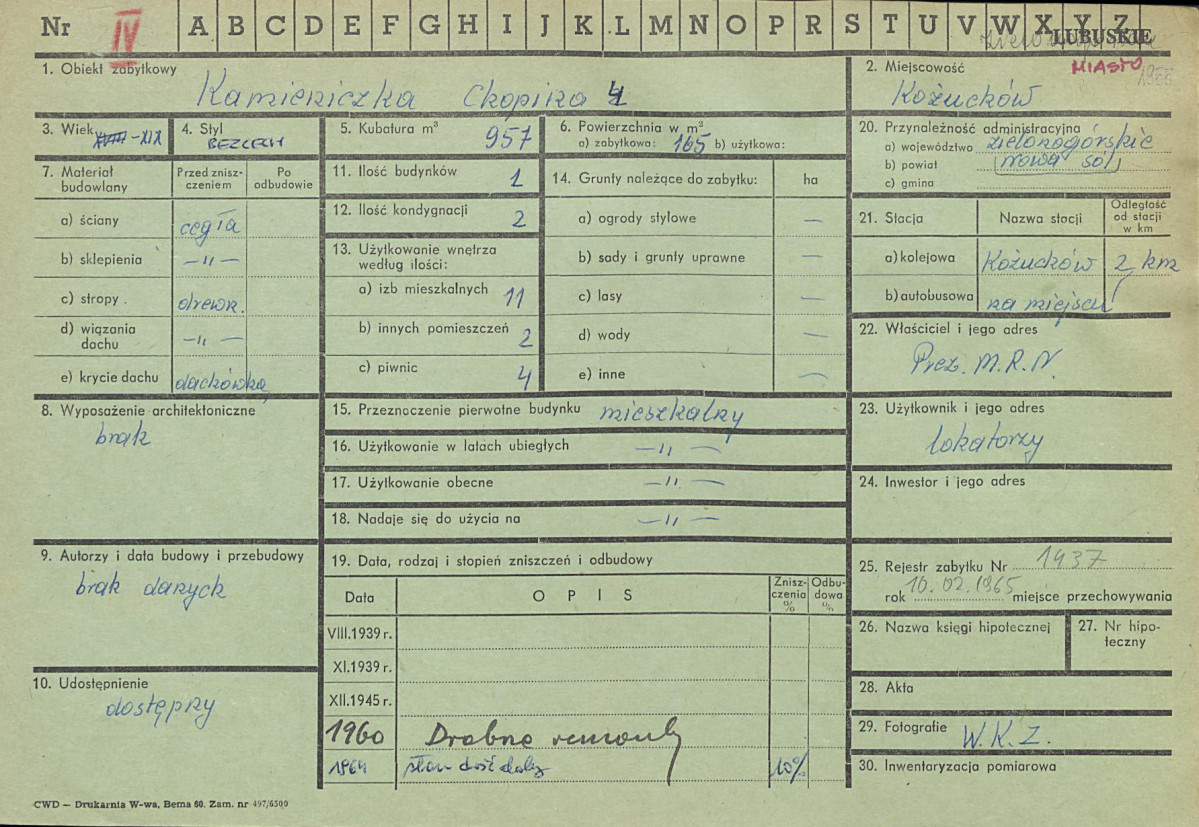 Nr IV A B C D E F G H I J K L M N O P R S T U V W X Y Z
LUBUSKIE
MIASTO
1. Obiekt zabytkowy
Kamieniczka Chopina 4
2. Miejscowość
Kożuchów
3. Wiek XVIII-XIX
4. Styl
BEZCECH
5. Kubatura m³ 957
6. Powierzchnia w m²
a) zabytkowa: 165 b) użytkowa:
20. Przynależność administracyjna
a) województwo zielonogórskie
b) powiat nowa sól
c) gmina
7. Materiał budowlany
Przed znisz-
czeniem
Po
odbudowie
a) ściany cegła
b) sklepienia —„—
c) stropy drewn.
d) wiązania
dachu —„—
e) krycie dachu dachówka
11. Ilość budynków 1
12. Ilość kondygnacji 2
13. Użytkowanie wnętrza
według ilości:
a) izb mieszkalnych 11
b) innych pomieszczeń 2
c) piwnic 4
14. Grunty należące do zabytku: ha
a) ogrody stylowe —
b) sady i grunty uprawne —
c) lasy —
d) wody —
e) inne —
21. Stacja
Nazwa stacji
Odległość
od stacji
w km
a) kolejowa Kożuchów 2 km
b) autobusowa na miejscu
22. Właściciel i jego adres
Prez. M.R.N.
8. Wyposażenie architektoniczne
brak
15. Przeznaczenie pierwotne budynku mieszkalny
16. Użytkowanie w latach ubiegłych —„—
17. Użytkowanie obecne —„—
18. Nadaje się do użycia na —„—
23. Użytkownik i jego adres
lokatorzy
24. Inwestor i jego adres
9. Autorzy i data budowy i przebudowy
brak danych
10. Udostępnienie
dostępny
19. Data, rodzaj i stopień zniszczeń i odbudowy
Data
OPIS
Znisz-
czenia
%
Odbu-
dowa
%
VIII.1939 r.
XI.1939 r.
XII.1945 r.
1960 Drobne remonty
1964 stan dość dobry 10%
25. Rejestr zabytku Nr 1937
rok 10.02.1965 miejsce przechowywania
26. Nazwa księgi hipotecznej
27. Nr hipo-
teczny
28. Akta
29. Fotografie W.K.Z.
30. Inwentaryzacja pomiarowa
CWD — Drukarnia W-wa, Bema 60. Zam. nr 497/6500